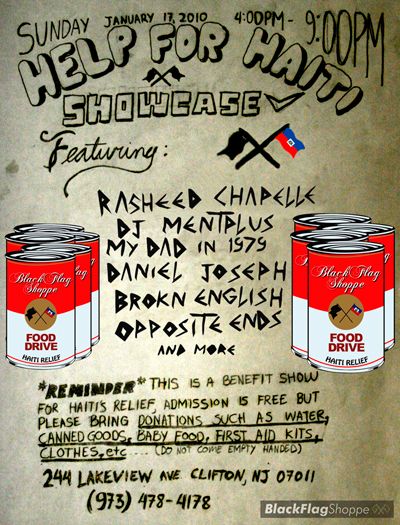 SUNDAY JANUARY 17, 2010 4:00PM - 9:00PM
HELP FOR HAITI
SHOWCASE
Featuring:
RASHEED CHAPELLE
DJ MENTPLUS
MY DAD IN 1979
DANIEL JOSEPH
BROKN ENGLISH
OPPOSITE ENDS
AND MORE
Black Flag
Shoppe
FOOD
DRIVE
HAITI RELIEF
Black Flag
Shoppe
FOOD
DRIVE
HAITI RELIEF
*REMINDER* THIS IS A BENEFIT SHOW
FOR HAITI'S RELIEF, ADMISSION IS FREE BUT
PLEASE BRING DONATIONS SUCH AS WATER,
CANNED GOODS, BABY FOOD, FIRST AID KITS,
CLOTHES, etc... (DO NOT COME EMPTY HANDED)
244 LAKEVIEW AVE CLIFTON, NJ 07011
(973) 478-4178
BlackFlagShoppe